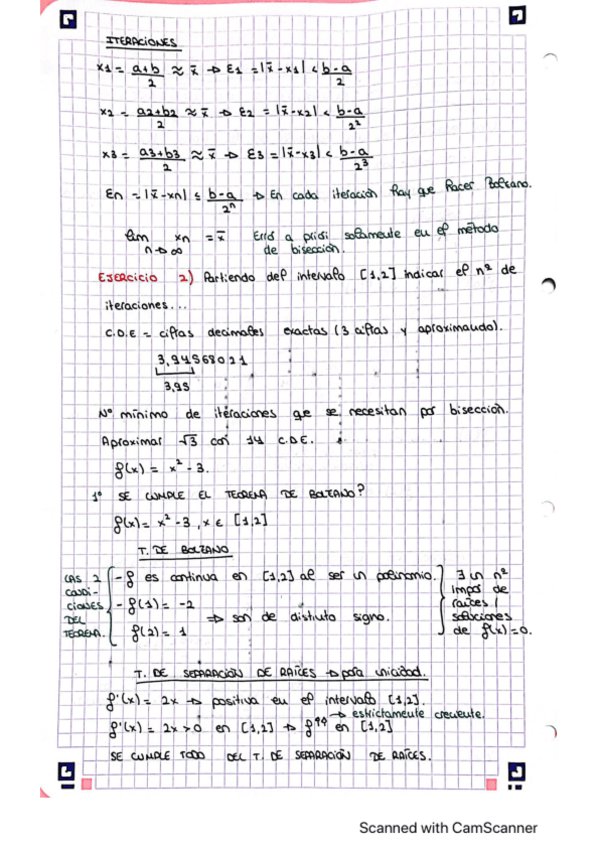 ITERACIONES
x1 = a+b/2 ≈ x̄ → ε1 = |x̄-x1| < b-a/2
x2 = a2+b2/2 ≈ x̄ → ε2 = |x̄-x2| < b-a/2²
x3 = a3+b3/2 ≈ x̄ → ε3 = |x̄-x3| < b-a/2³
εn = |x̄-xn| ≤ b-a/2ⁿ → En cada iteración hay que hacer Bolzano.
lim n→∞ xn = x̄ Error a priori solamente en el método
de bisección.
EJERCICIO 2) Partiendo del intervalo [1,2] indicar el nº de
iteraciones...
C.D.E = cifras decimales exactas (3 cifras y aproximando).
3,94568021
3,95
Nº mínimo de iteraciones que se necesitan por bisección.
Aproximar √3 con 14 C.D.E.
f(x) = x² - 3.
1º SE CUMPLE EL TEOREMA DE BOLZANO?
f(x) = x² - 3, x ∈ [1,2]
T. DE BOLZANO
LAS 2 CONDICIONES DEL TEOREMA.
- f es continua en [1,2] al ser un polinomio.
- f(1) = -2
f(2) = 1
⇒ son de distinto signo.
∃ un nº
impar de
raíces /
soluciones
de f(x)=0.
T. DE SEPARACIÓN DE RAÍCES → para unicidad.
f'(x) = 2x → positiva en el intervalo [1,2].
→ estrictamente creciente.
f'(x) = 2x > 0 en [1,2] → f en [1,2]
SE CUMPLE TODO DEL T. DE SEPARACIÓN DE RAÍCES.
Scanned with CamScanner